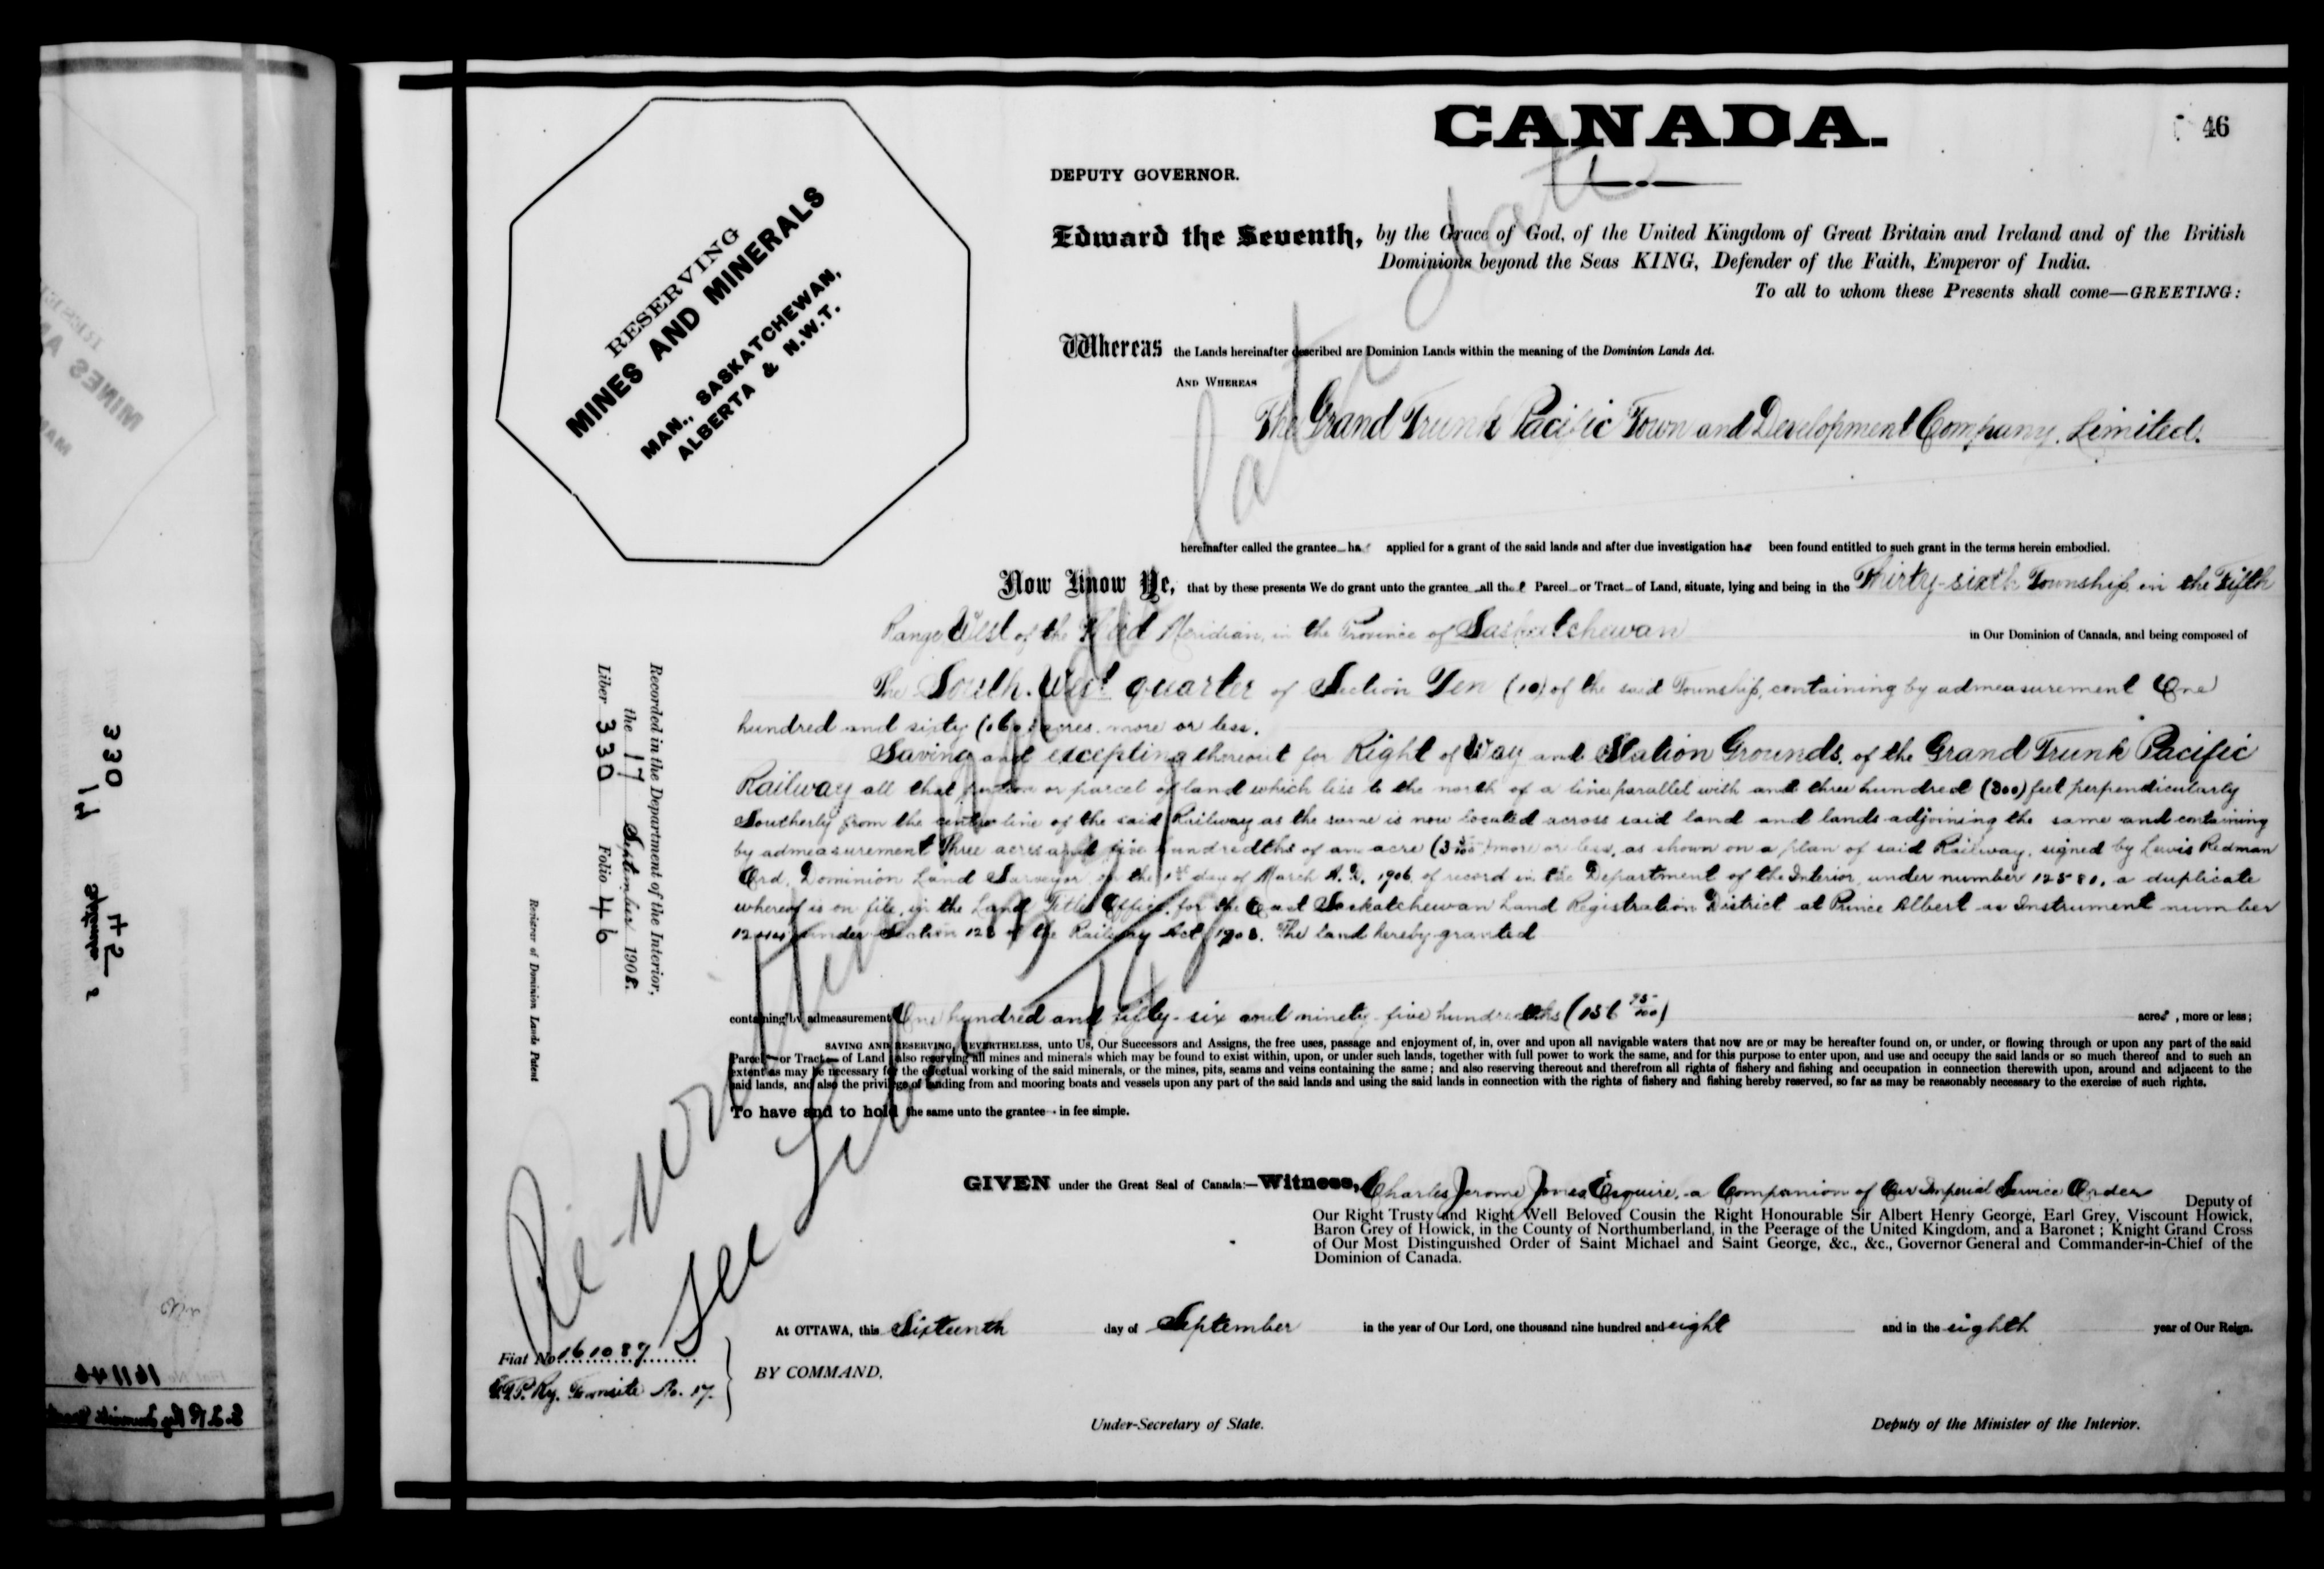 CANADA.
46
DEPUTY GOVERNOR.
RESERVING
MINES AND MINERALS
MAN., SASKATCHEWAN,
ALBERTA & N.W.T.
Edward the Seventh, by the Grace of God, of the United Kingdom of Great Britain and Ireland and of the British
Dominions beyond the Seas KING, Defender of the Faith, Emperor of India.
To all to whom these Presents shall come—GREETING:
Whereas the Lands hereinafter described are Dominion Lands within the meaning of the Dominion Lands Act.
AND WHEREAS
The Grand Trunk Pacific Town and Development Company, Limited.
hereinafter called the grantee has applied for a grant of the said lands and after due investigation has been found entitled to such grant in the terms herein embodied.
Now Know Ye, that by these presents We do grant unto the grantee all that Parcel or Tract of Land, situate, lying and being in the Thirty-sixth Township, in the Fifth
Range West of the Third Meridian, in the Province of Saskatchewan in Our Dominion of Canada, and being composed of
The South-West quarter of Section Ten (10) of the said Township, containing by admeasurement One
hundred and sixty (160) acres, more or less.
Saving and excepting thereout for Right of Way and Station Grounds, of the Grand Trunk Pacific
Railway all that portion or parcel of land which lies to the north of a line parallel with and three hundred (300) feet perpendicularly
Southerly from the centre line of the said Railway as the same is now located across said land and lands adjoining the same and containing
by admeasurement Three acres and five hundredths of an acre (3 5/100) more or less, as shown on a plan of said Railway, signed by Lewis Redman
Ord, Dominion Land Surveyor, on the 1st day of March A.D. 1906, of record in the Department of the Interior, under number 12580, a duplicate
whereof is on file, in the Land Titles Office, for the East Saskatchewan Land Registration District at Prince Albert as Instrument number
under Section 128 of the Railway Act, 1903. The land hereby granted
containing by admeasurement One hundred and fifty-six and ninety-five hundredths (156 95/100) acres, more or less;
SAVING AND RESERVING, NEVERTHELESS, unto Us, Our Successors and Assigns, the free uses, passage and enjoyment of, in, over and upon all navigable waters that now are or may be hereafter found on, or under, or flowing through or upon any part of the said
Parcel or Tract of Land also reserving all mines and minerals which may be found to exist within, upon, or under such lands, together with full power to work the same, and for this purpose to enter upon, and use and occupy the said lands or so much thereof and to such an
extent as may be necessary for the effectual working of the said minerals, or the mines, pits, seams and veins containing the same; and also reserving thereout and therefrom all rights of fishery and fishing and occupation in connection therewith upon, around and adjacent to the
said lands, and also the privilege of landing from and mooring boats and vessels upon any part of the said lands and using the said lands in connection with the rights of fishery and fishing hereby reserved, so far as may be reasonably necessary to the exercise of such rights.
To have and to hold the same unto the grantee in fee simple.
GIVEN under the Great Seal of Canada:—Witness, Charles Jerome Jones, Esquire, a Companion of Our Imperial Service Order Deputy of
Our Right Trusty and Right Well Beloved Cousin the Right Honourable Sir Albert Henry George, Earl Grey, Viscount Howick,
Baron Grey of Howick, in the County of Northumberland, in the Peerage of the United Kingdom, and a Baronet; Knight Grand Cross
of Our Most Distinguished Order of Saint Michael and Saint George, &c., &c., Governor General and Commander-in-Chief of the
Dominion of Canada.
At OTTAWA, this Sixteenth day of September in the year of Our Lord, one thousand nine hundred and eight and in the eighth year of Our Reign.
BY COMMAND,
Fiat No. 161087
G.T.P. Ry. Townsite No. 17.
Under-Secretary of State.
Deputy of the Minister of the Interior.
Recorded in the Department of the Interior,
the 17 September 1908.
Liber 330 Folio 46
Reviser of Dominion Lands Patent
Re-written
See Liber
330